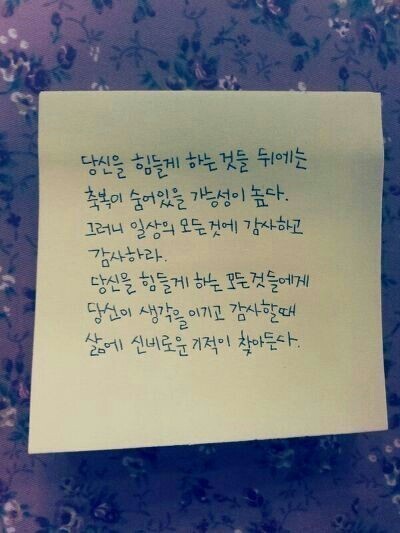 당신을 힘들게 하는것들 뒤에는
축복이 숨어있을 가능성이 높다.
그러니 일상의 모든것에 감사하고
감사하라.
당신을 힘들게 하는 모든것들에게
당신이 생각을 이기고 감사할때
삶에 신비로운 기적이 찾아든다.